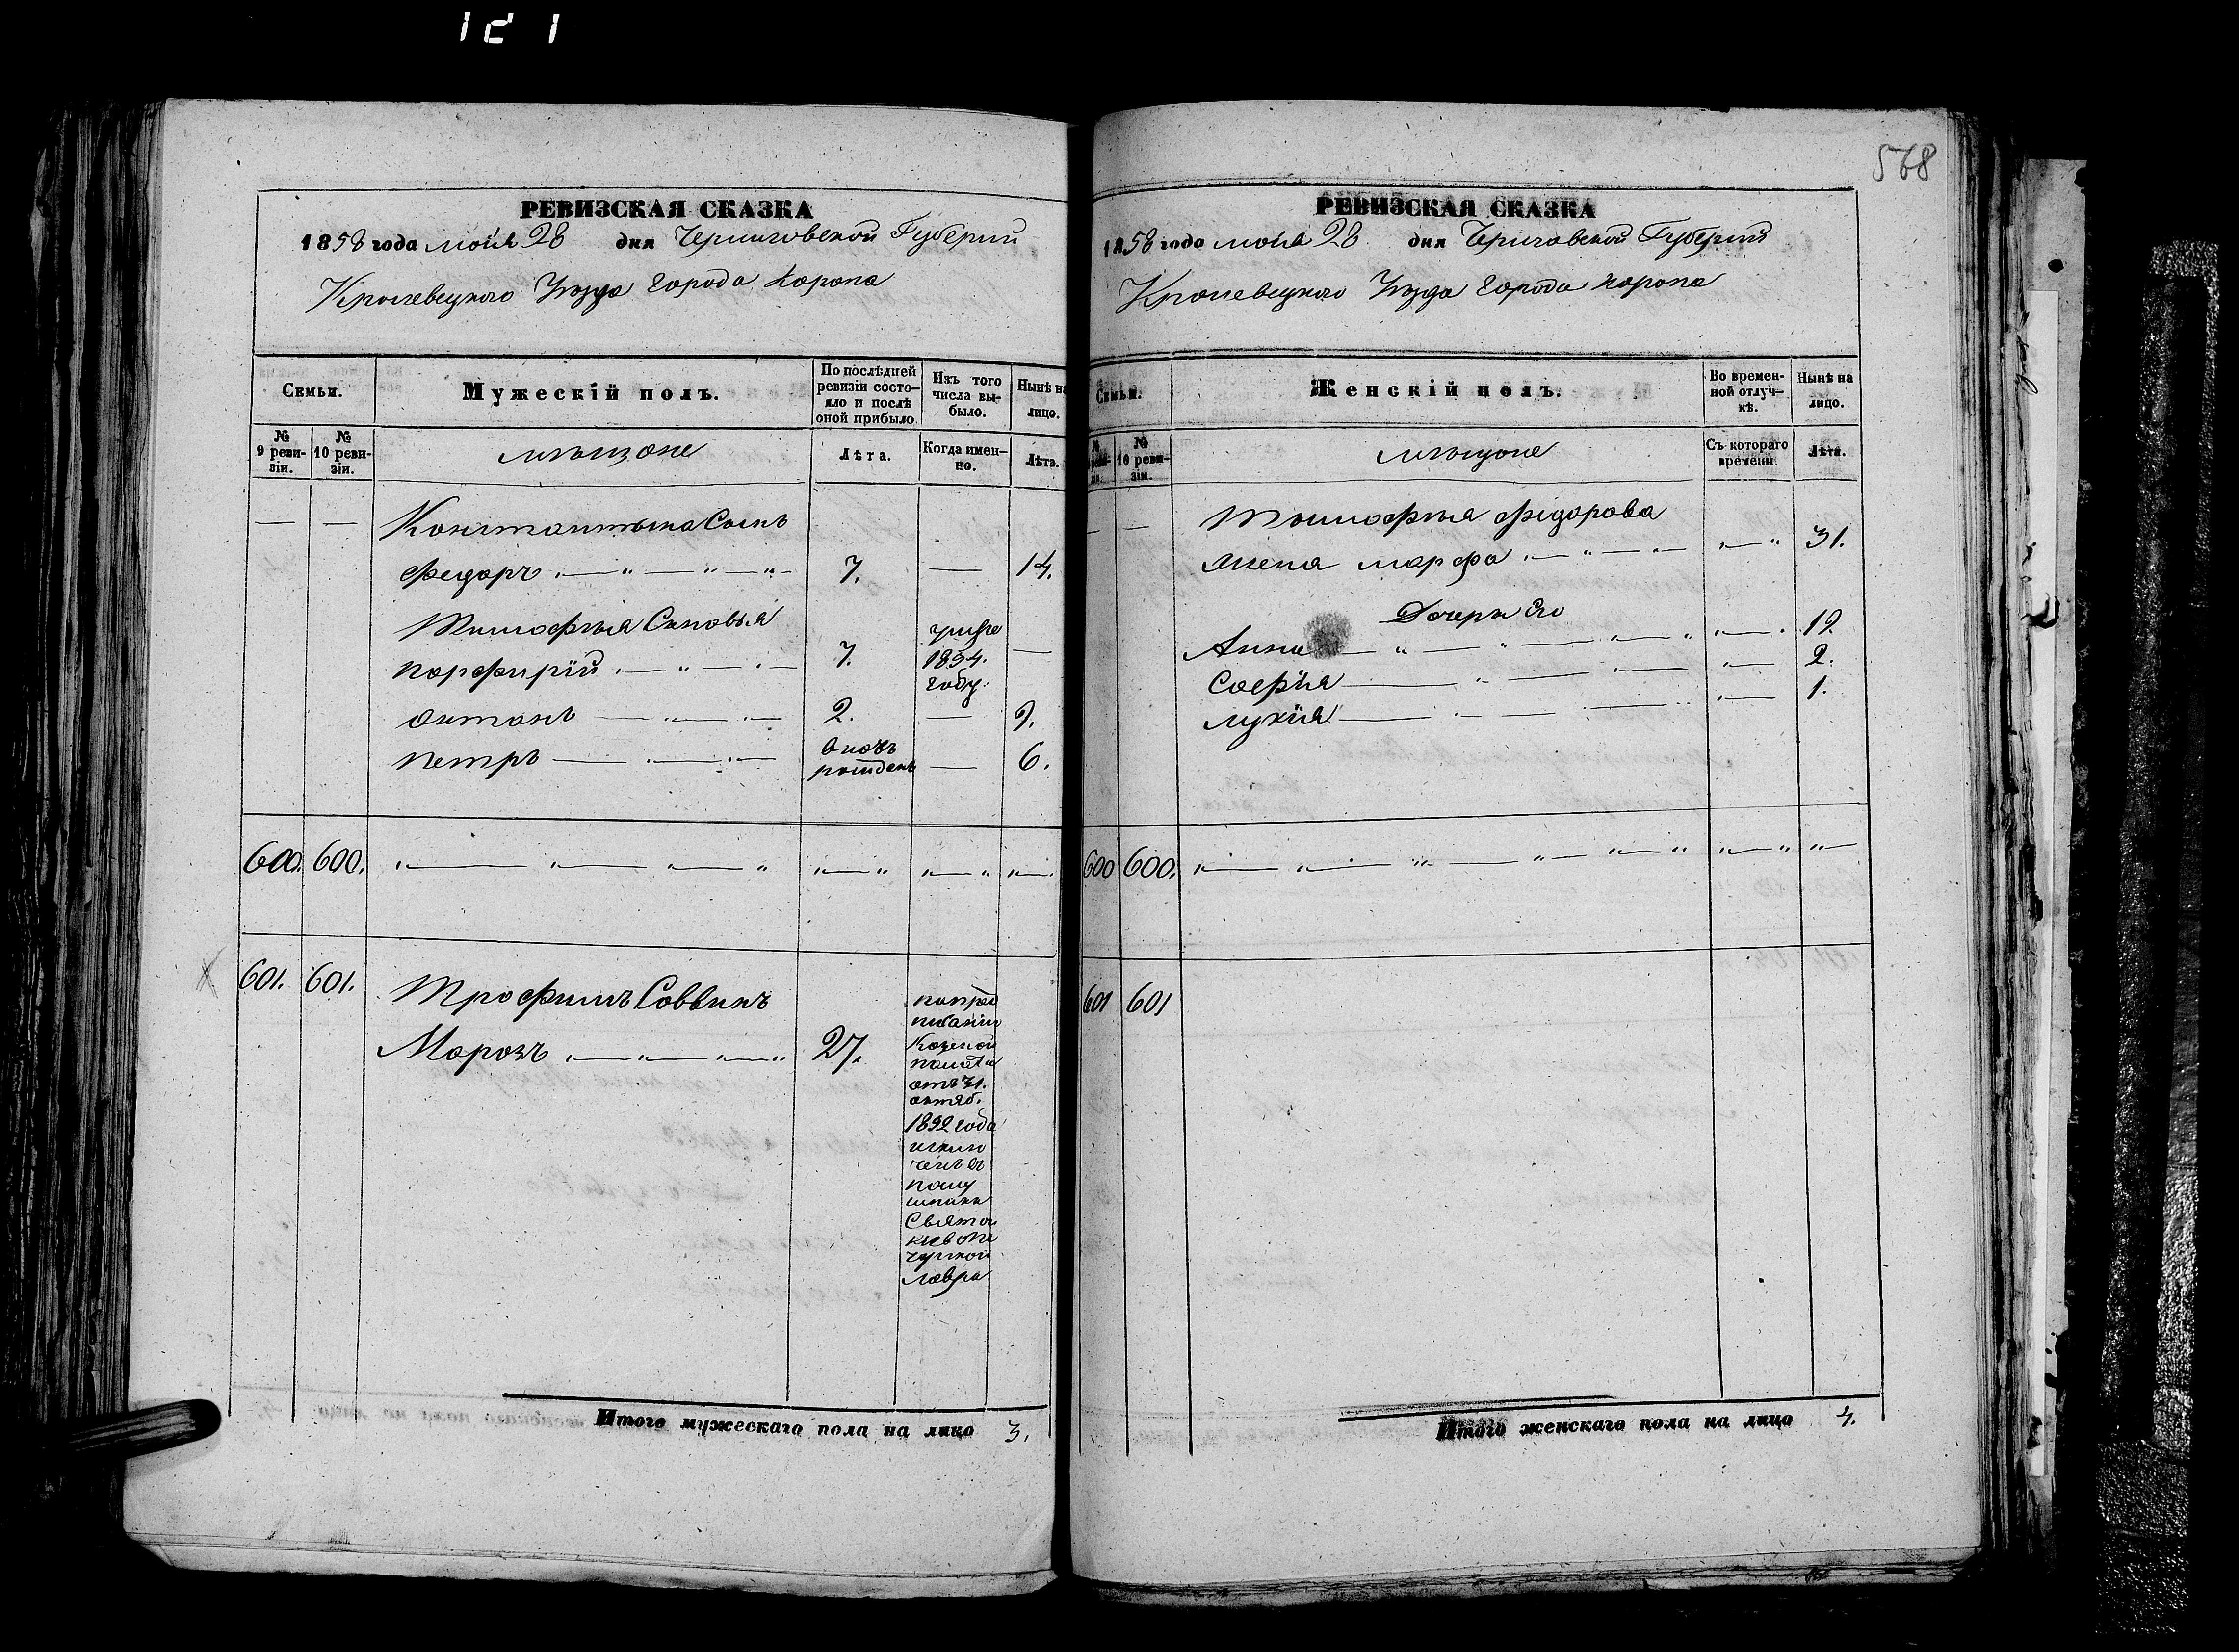 121
568
РЕВИЗСКАЯ СКАЗКА
1858 года мая 28 дня Черниговской Губерніи
Кролевецкаго Уѣзда города Коропа
Семьи.
Мужескій полъ.
По послѣдней ревизіи состояло и послѣ оной прибыло
Изъ того числа выбыло.
Нынѣ на лицо.
№ 9 ревизіи.
№ 10 ревизіи.
мѣщане
Лѣта.
Когда именно.
Лѣта.
— — Константина Сынъ
Федоръ 7. — 14.
Тимофѣя Сыновья
Порфирій 7. умре 1854. году —
Антонъ 2. — 9.
Петръ вновь рожденъ — 6.
600. 600.
601. 601. Трофимъ Саввинъ
Морозъ 27.
по пред
писанію
Казеной
палаты
отъ 31.
октяб.
1852 года
исклю
ченъ въ
послу
шники
Святой
кіевопе
черской
лавры
Итого мужескаго пола на лицо 3.
РЕВИЗСКАЯ СКАЗКА
1858 года мая 28 дня Черниговской Губерніи
Кролевецкаго Уѣзда города Коропа
Семьи.
Женскій полъ.
Во временной отлучкѣ.
Нынѣ на лицо.
№ 10 ревизіи.
мѣщане
Съ котораго времени.
Лѣта.
— — Тимофѣя Федорова
жена Марфа 31.
Дочери Его
Анна 12
Софія 2.
Лукія 1.
600 600.
601 601
Итого женскаго пола на лицо 4.